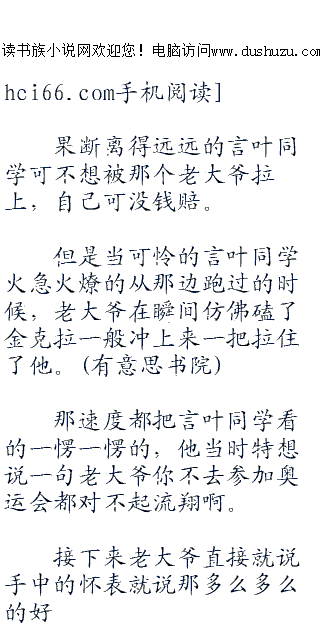 读书族小说网欢迎您！电脑访问www.dushuzu.com
hci66.com手机阅读]
果断离得远远的言叶同
学可不想被那个老大爷拉
上，自己可没钱赔。
但是当可怜的言叶同学
火急火燎的从那边跑过的时
候，老大爷在瞬间仿佛磕了
金克拉一般冲上来一把拉住
了他。(有意思书院)
那速度都把言叶同学看
的一愣一愣的，他当时特想
说一句老大爷你不去参加奥
运会都对不起流翔啊。
接下来老大爷直接就说
手中的怀表就说那多么多么
的好